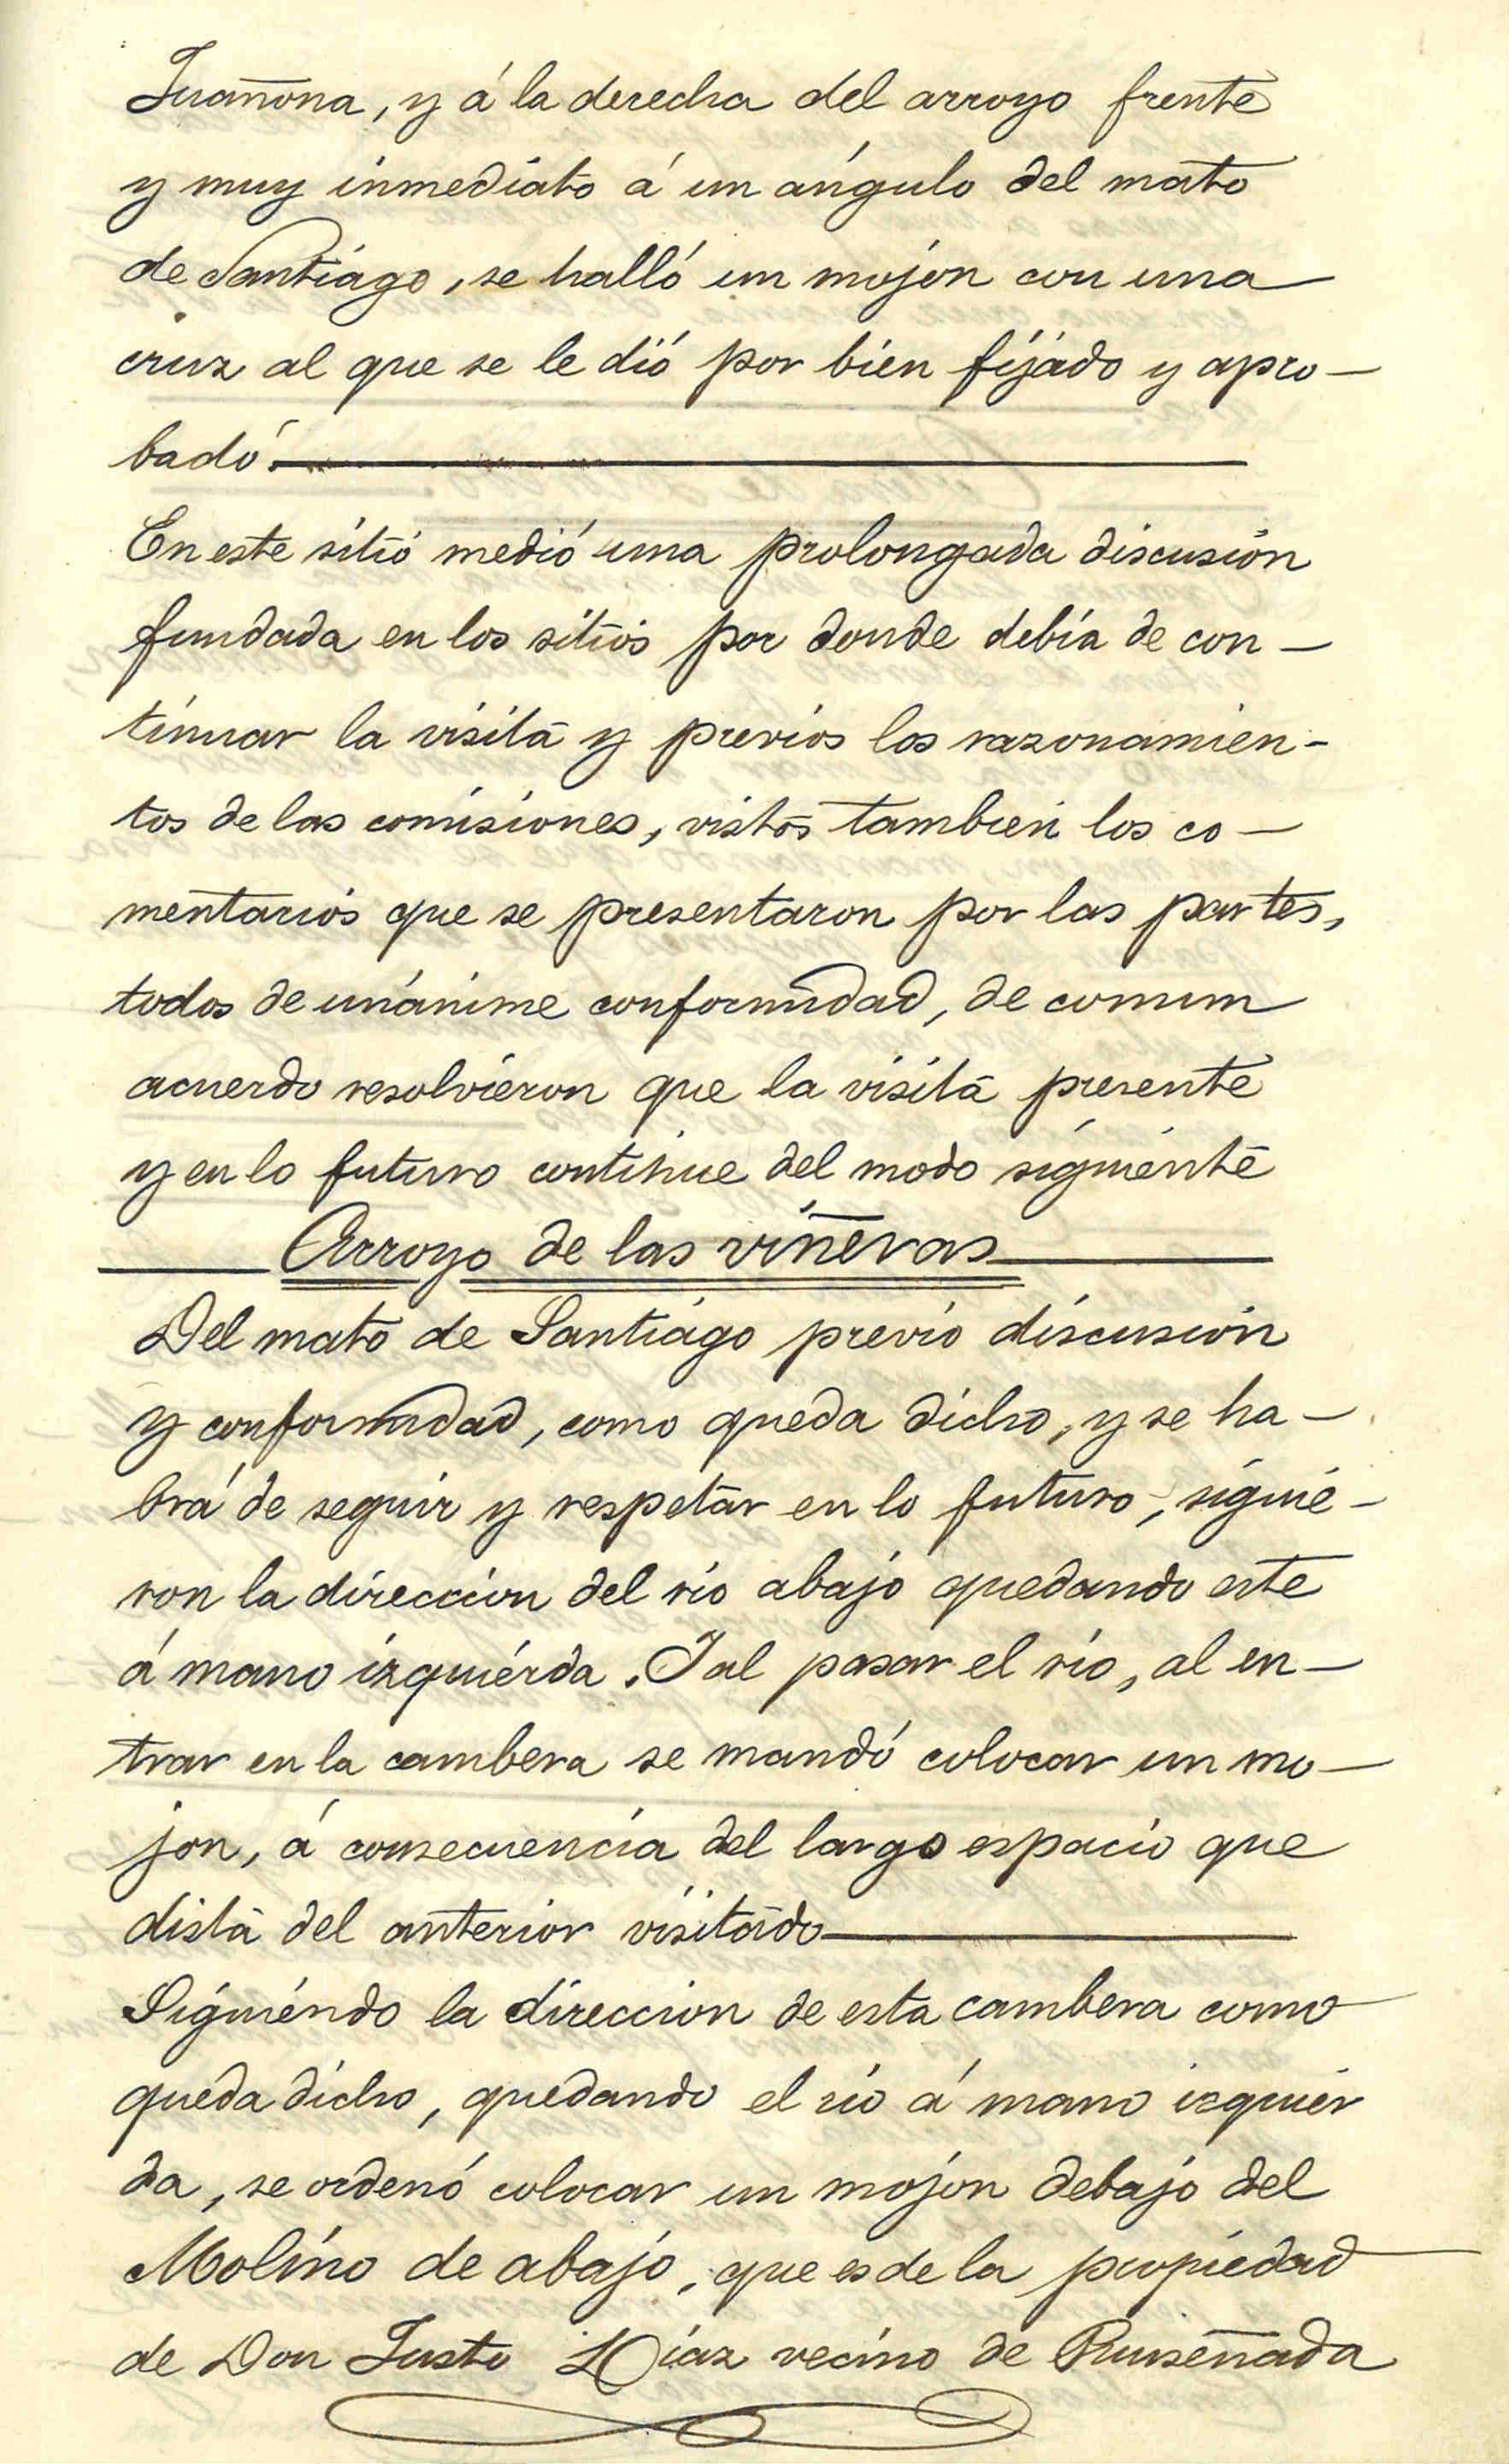 Juañona, y á la derecha del arroyo frente
y muy inmediato á un ángulo del mato
de Santiago, se halló un mojon con una
cruz al que se le dió por bien fijado y apro-
bado.
En este sitio medió una prolongada discusión
fundada en los sitios por donde debía de con-
tinuar la visita y previos los razonamien-
tos de las comisiones, vistos tambien los co-
mentarios que se presentaron por las partes,
todos de unánime conformidad, de comum
acuerdo resolvieron que la visita presente
y en lo futuro continue del modo siguiente
Arroyo de las viñeras
Del mato de Santiago previo discusión
y conformidad, como queda dicho, y se ha-
brá de seguir y respetar en lo futuro, siguie-
ron la direccion del rio abajo quedando este
á mano izquierda. Y al pasar el rio, al en-
trar en la cambera se mandó colocar un mo-
jon, á consecuencia del largo espacio que
dista del anterior visitado
Siguiendo la direccion de esta cambera como
queda dicho, quedando el rio á mano izquier
da, se ordenó colocar un mojon debajo del
Molino de abajo, que es de la propiedad
de Don Justo Díaz vecino de Ruiseñada